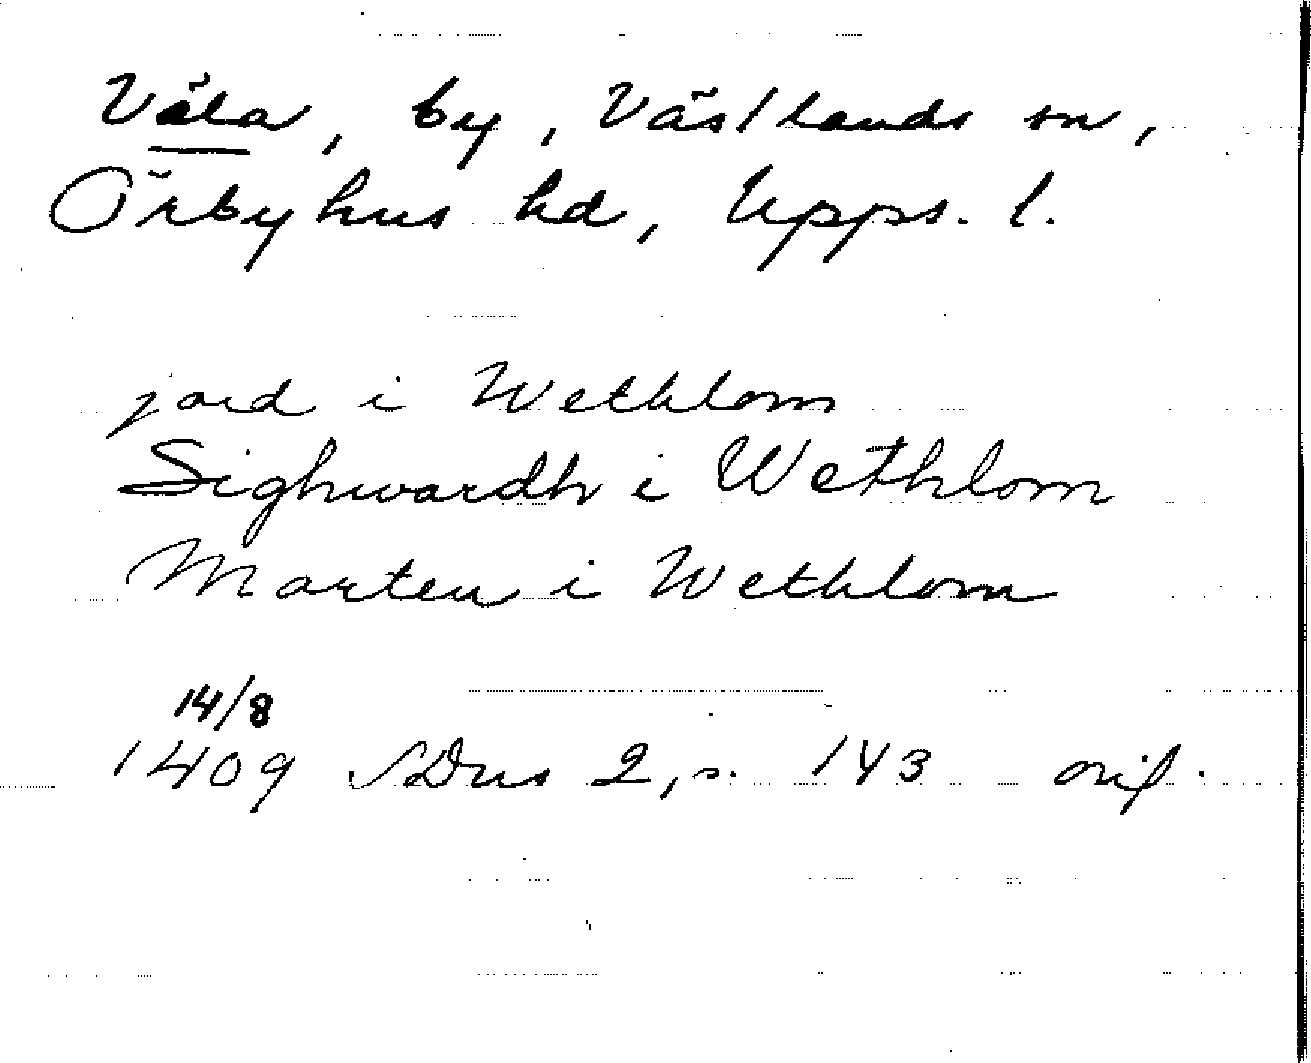 Väla, by, Västlands sn,
Örbyhus hd, Upps. l.
jord i Wethlom
Sighwardh i Wethlom
Marten i Wethlom
14/8
1409 SDns 2, s. 143 orig.